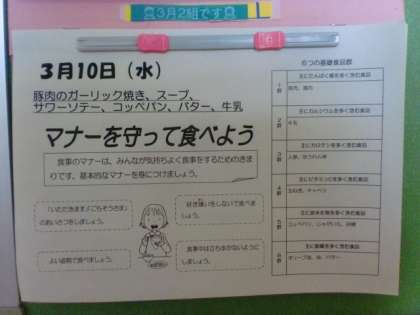 3月2組です
3月10日(水)
豚肉のガーリック焼き、スープ、
サワーソテー、コッペパン、バター、牛乳
マナーを守って食べよう
食事のマナーは、みんなが気持ちよく食事をするためのきま
りです。基本的なマナーを身につけましょう。
「いただきます」「ごちそうさま」
のあいさつをしましょう。
好き嫌いをしないで食べま
しょう。
よい姿勢で食べましょう。
食事中は立ち歩かないように
しましょう。
6つの基礎食品群
1群
主にたんぱく質を多く含む食品
2群
主にカルシウムを多く含む食品
牛乳
3群
主にカロテンを多く含む食品
人参、ほうれん草
4群
主にビタミンCを多く含む食品
玉ねぎ、キャベツ
5群
主に炭水化物を多く含む食品
コッペパン、じゃがいも、砂糖
6群
主に脂質を多く含む食品
オリーブ油、油、バター